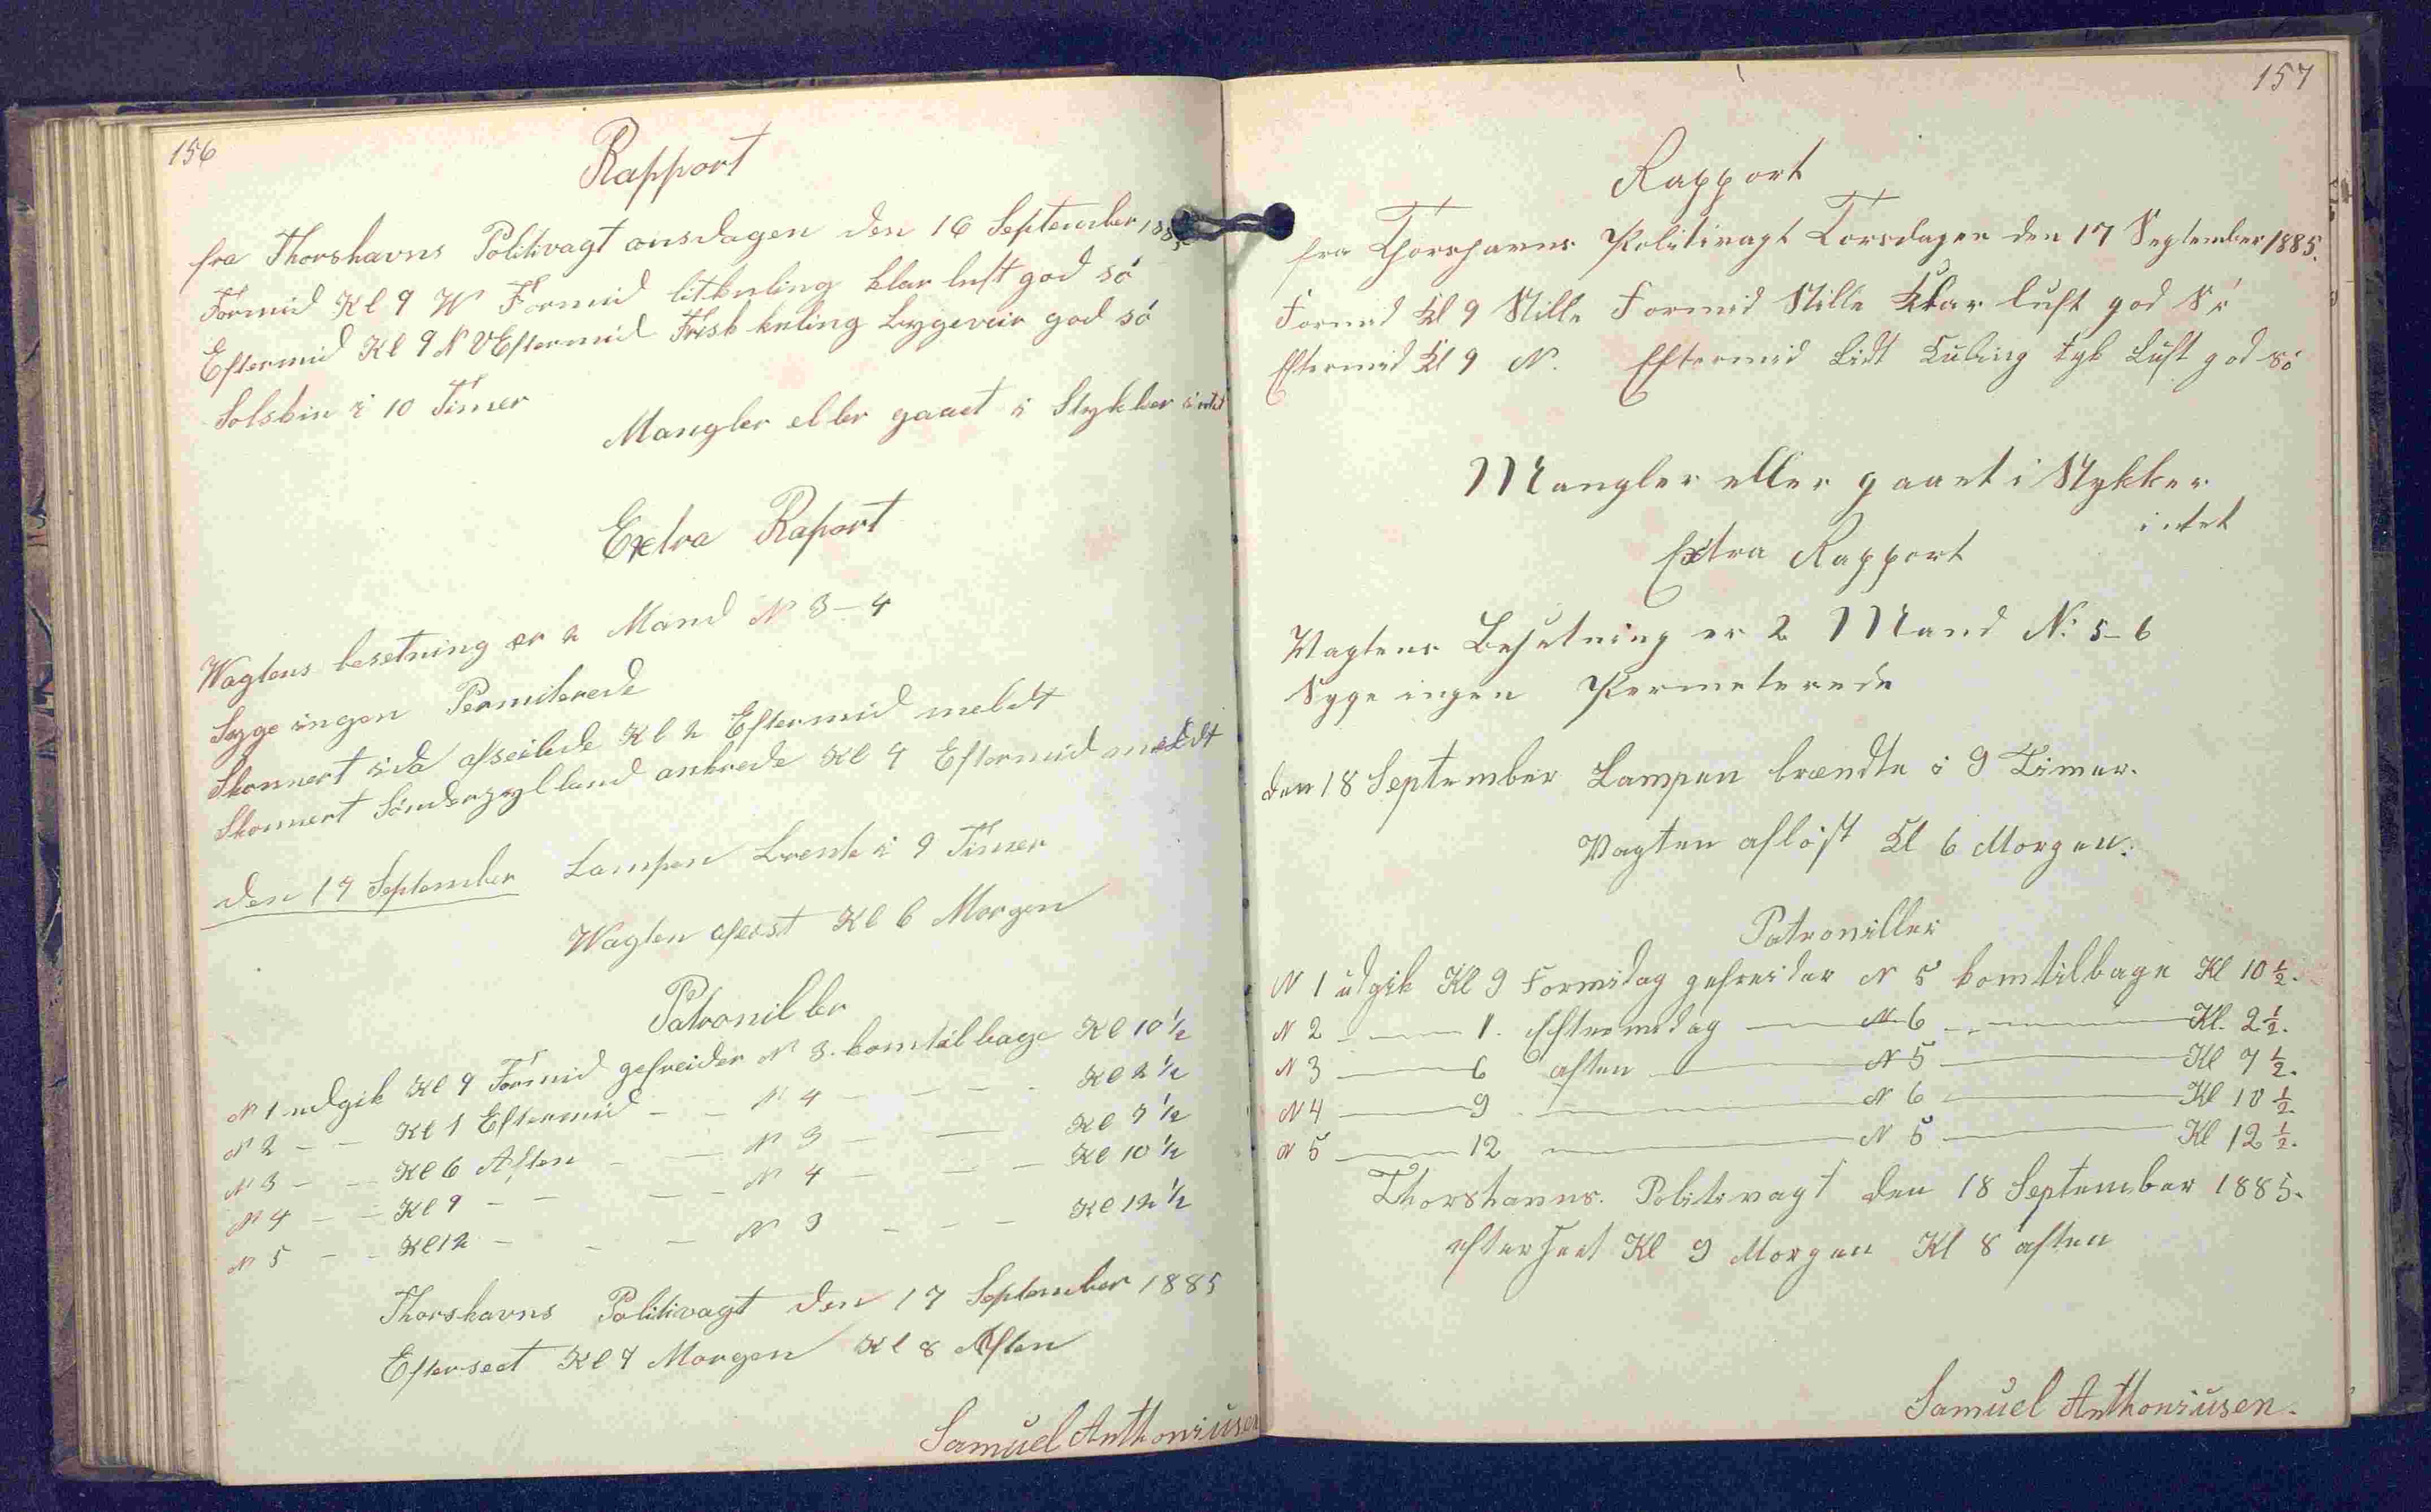 156
Rapport
fra Thorshavns Politivagt onsdagen den 16 September 1885
Formid Kl 9 W Formid litkuling klar luft god só
Eftermid Kl 9 N V Eftermid Frisk kuling bygeveir god só
Solskin i 10 Timer
Mangler eller gaaet i Stykker intet
Extra Raport
Wagtens besetning er 2 Mand N 3-4
Syge ingen Permiterede
Skonnert ida afseilede Kl 2 Eftermid meldt
Skonnert Sønderjylland ankrede Kl 4 Eftermid meldt
den 17 September Lampen brente i 9 Timer
Wagten aflöst Kl 6 Morgen
Patroniller
N 1 udgik Kl 9 Formid gefreider N 3. komtilbage Kl 10 1/2
N 2 — — Kl 1 Eftermid — — N 4 — — — Kl 2 1/2
N 3 — — Kl 6 Aften — — N 3 — — Kl 7 1/2
N 4 — — Kl 9 — — — N 4 — — — Kl 10 1/2
N 5 — — Kl 12 — — — N 3 — — — Kl 12 1/2
Thorshavns Politivagt den 17 September 1885
Efterseet Kl 7 Morgen Kl 8 Aften
Samuel Anthoniusen
157
Rapport
fra Thorshavns Politivagt Torsdagen den 17 September 1885.
Formid Kl 9 Stille Formid Stille Klar luft god Só
Eftermid Kl 9 N. Eftermid Lidt Kuling tyk Luft god só
Mangler eller gaaet i Stykker
intet
Extra Rapport
Vagtens Besetning er 2 Mand N: 5-6
Syge ingen Permeterede
den 18 September Lampen brændte i 9 Timer.
Vagten afløst Kl 6 Morgen.
Patroniller
N 1 udgik Kl 9 Formidag gefreider N 5 komtilbage Kl 10 1/2.
N 2 — — 1. Eftermidag — N 6 — Kl. 2 1/2.
N 3 — 6 aften — N 5 — Kl 7 1/2.
N 4 — 9 — N 6 — Kl 10 1/2.
N 5 — 12 — N 5 — Kl 12 1/2.
Thorshavns. Politivagt den 18 September 1885.
efterseet Kl 9 Morgen Kl 8 aften
Samuel Anthoniusen.